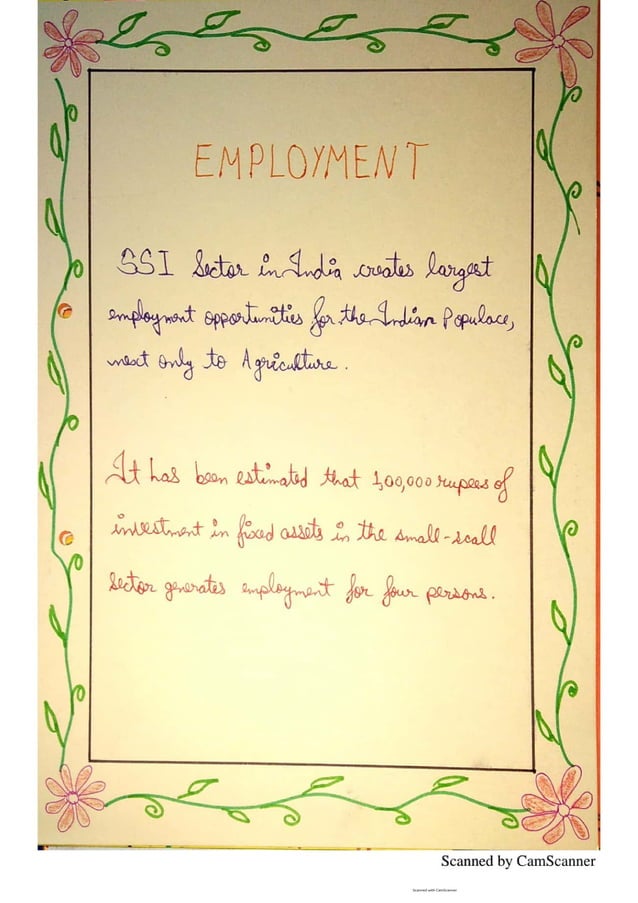 EMPLOYMENT
SSI Sector in India creates largest
employment opportunities for the Indian Populace,
next only to Agriculture.
It has been estimated that 100,000 rupees of
investment in fixed assets in the small-scall
sector generates employment for four persons.
Scanned by CamScanner
Scanned with CamScanner